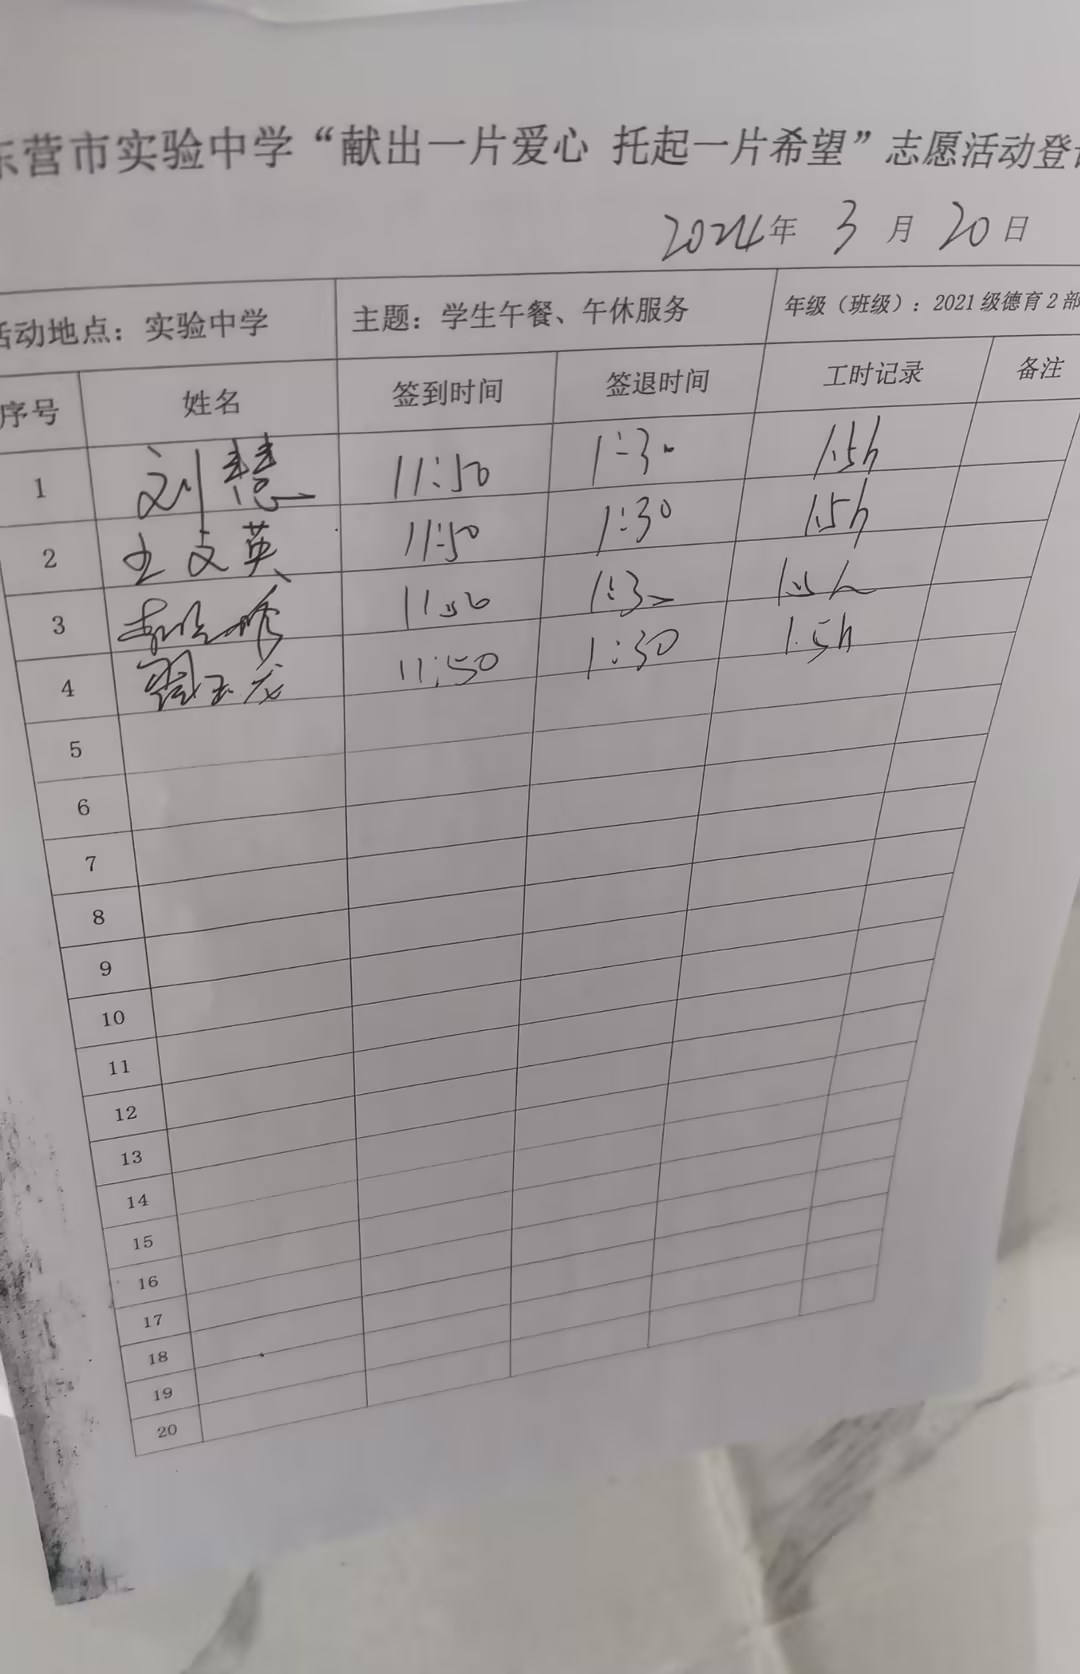 东营市实验中学“献出一片爱心 托起一片希望”志愿活动登
2024年 3月 20日
活动地点：实验中学 主题：学生午餐、午休服务 年级（班级）：2021级德育2部
序号 姓名 签到时间 签退时间 工时记录 备注
1 刘慧 11:50 1:30 1.5h
2 王文英 11:50 1:30 1.5h
3 11:50 1:30 1.5h
4 11:50 1:30 1.5h
5
6
7
8
9
10
11
12
13
14
15
16
17
18
19
20